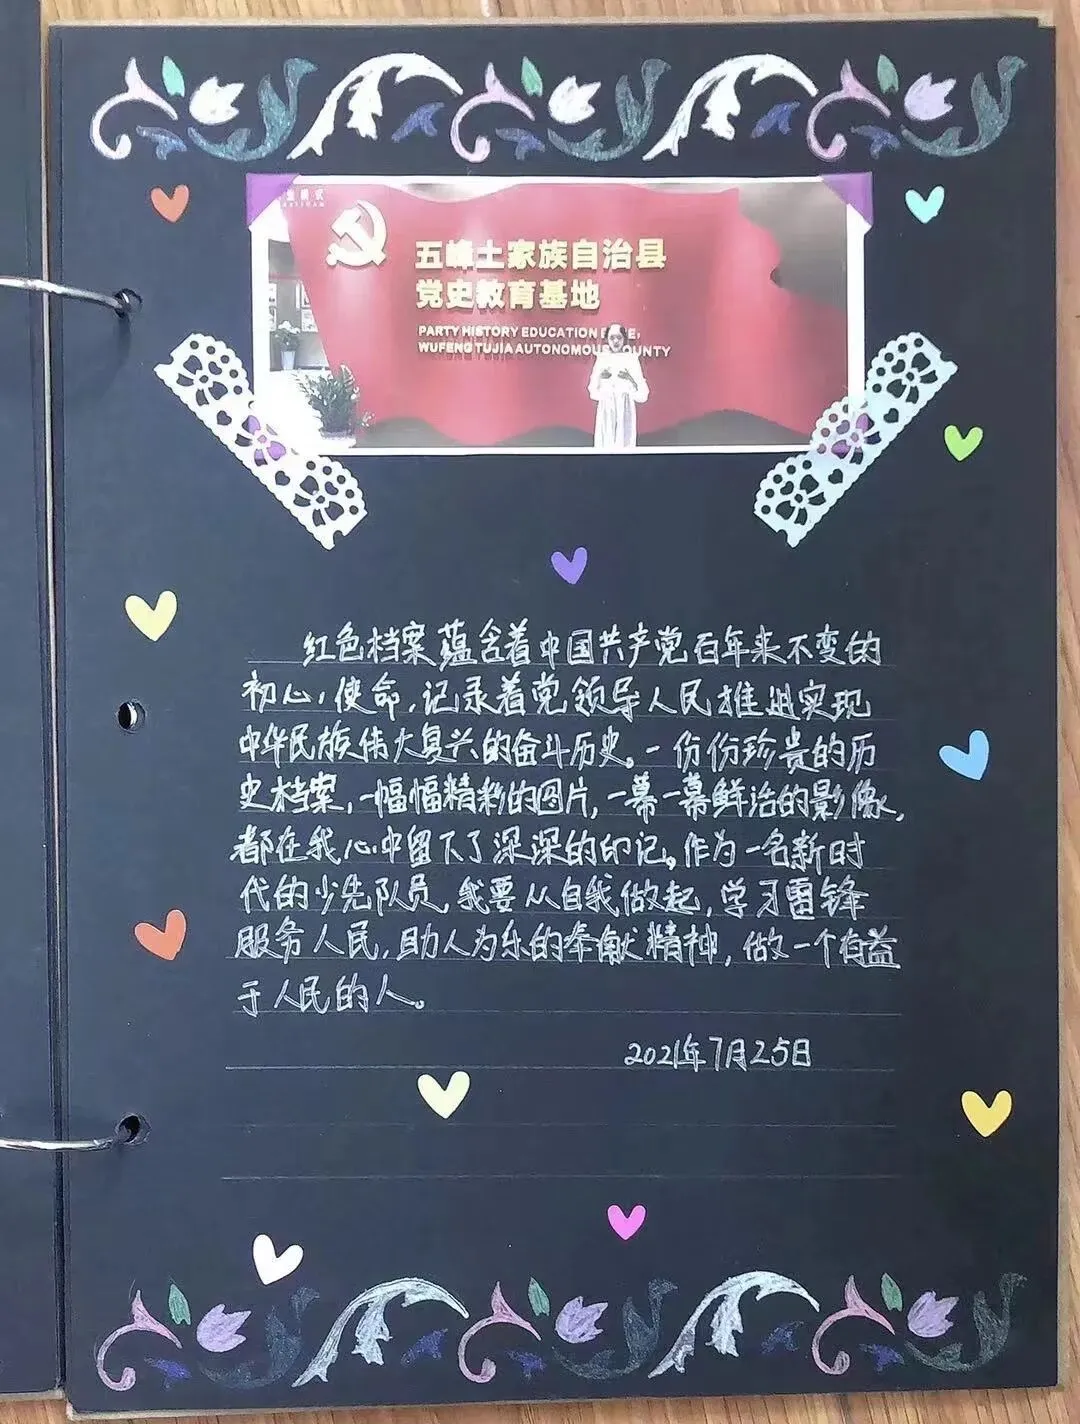 五峰土家族自治县
党史教育基地
PARTY HISTORY EDUCATION
WUFENG TUJIA AUTONOMOUS COUNTY
红色档案蕴含着中国共产党百年来不变的
初心,使命,记录着党领导人民推进实现
中华民族伟大复兴的奋斗历史。一份份珍贵的历
史档案,一幅幅精彩的图片,一幕一幕鲜活的影像,
都在我心中留下了深深的印记。作为一名新时
代的少先队员,我要从自我做起,学习雷锋
服务人民,助人为乐的奉献精神,做一个有益
于人民的人。
2021年7月25日